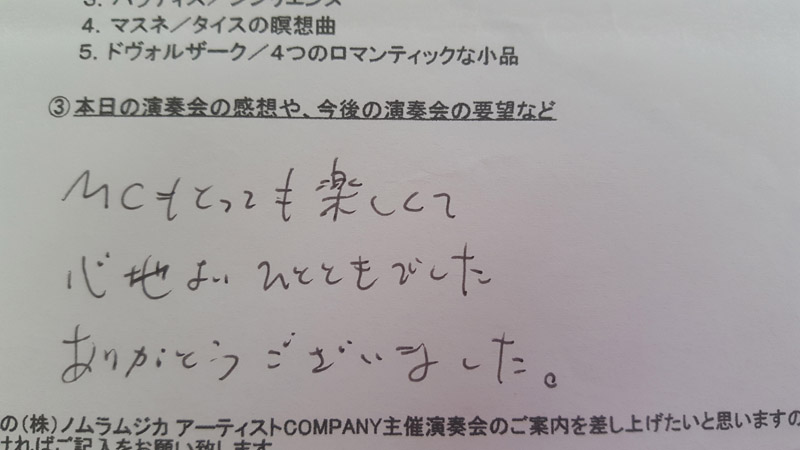 4. マスネ／タイスの瞑想曲
5. ドヴォルザーク／4つのロマンティックな小品
③本日の演奏会の感想や、今後の演奏会の要望など
MCもとっても楽しくて
心地よいひとときでした
ありがとうございました。
の（株）ノムラムジカ アーティストCOMPANY主催演奏会のご案内を差し上げたいと思いますの
ければご記入をお願い致します